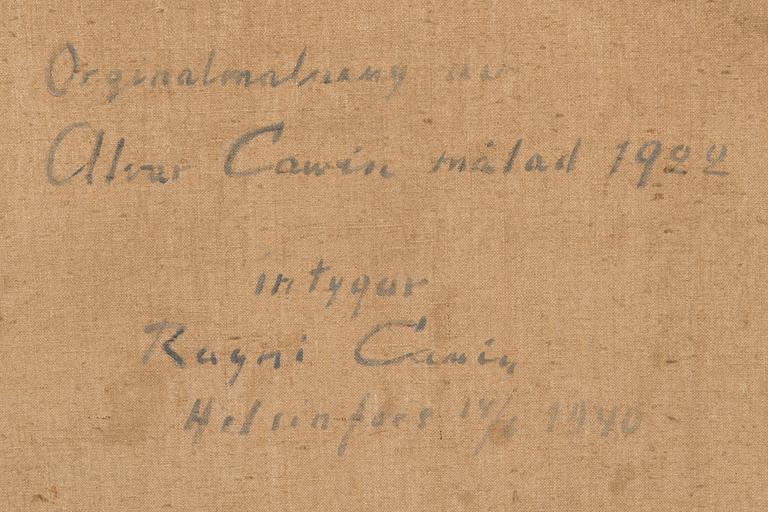 Orginalmålning av
Alvar Cawén målad 1922
intygar
Ragni Cawén
Helsinfors 14/6 1940